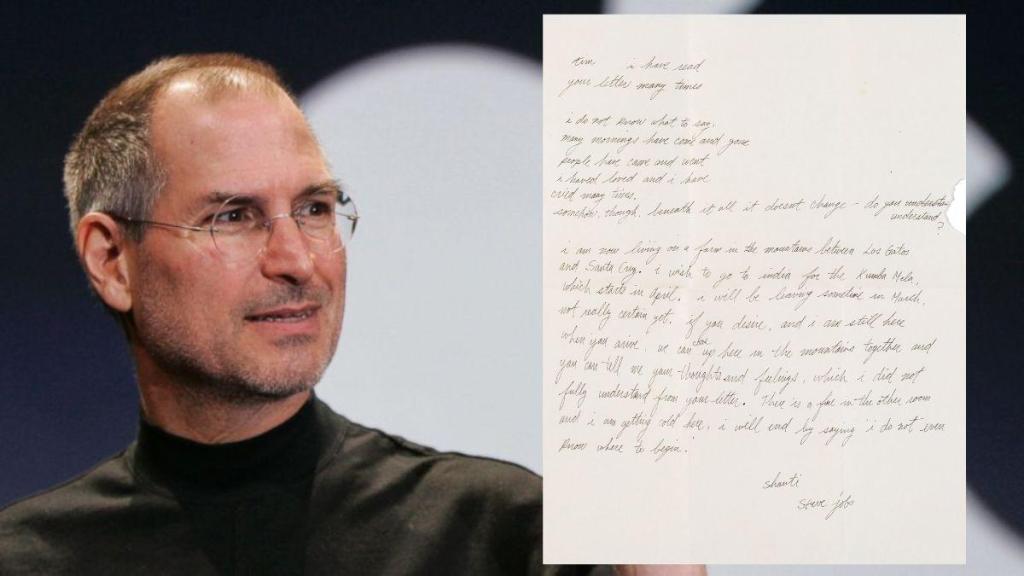 tim     i have read
your letter many times
i do not know what to say.
many mornings have come and gone
people have came and went
i haved loved and i have
cried many times.
somehow, though, beneath it all it doesnt change - do you
understand?
i am now living on a farm in the mountains between Los Gatos
and Santa Cruz. i wish to go to india for the Kumba Mela,
which starts in April. i will be leaving sometime in March,
not really certain yet. if you desire, and i am still here
when you arive, we can be up here in the mountains together and
you can tell me your thoughts and feelings, which i did not
fully understand from your letter. There is a fire in the other room
and i am getting cold here. i will end by saying "i do not even
know where to begin."
shanti
steve jobs